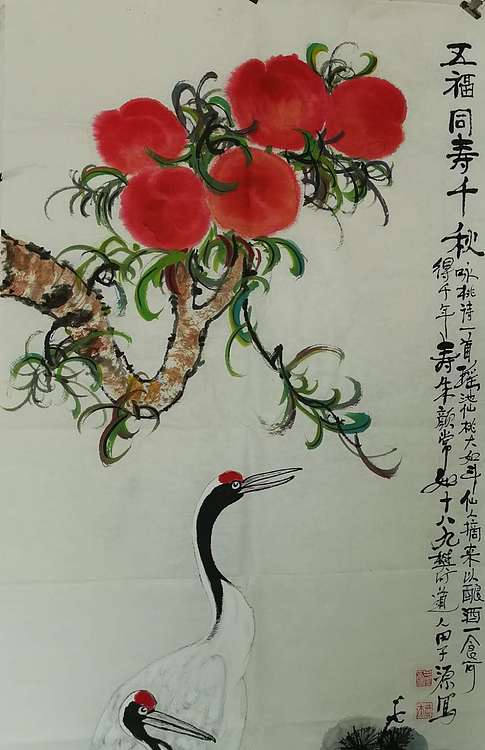 五福同寿千秋咏桃诗一首瑶池仙桃大如斗仙人摘来以酿酒一食可
得千年寿朱颜常如十八九竹道人田子源写